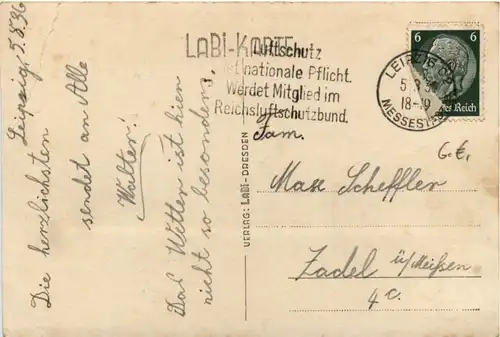 LABI-KARTE
Luftschutz
ist nationale Pflicht.
Werdet Mitglied im
Reichsluftschutzbund.
6 6
Deutsches Reich
LEIPZIG
18-19
MESSESTADT
Leipzig, 5.8.36
Die herzlichsten
sendet an Alle
Walter!
Das Wetter ist hier
nicht so besonders.
VERLAG: LABI-DRESDEN
Fam.
6.€.
Max Scheffler
Zadel ü/Meißen
4c.